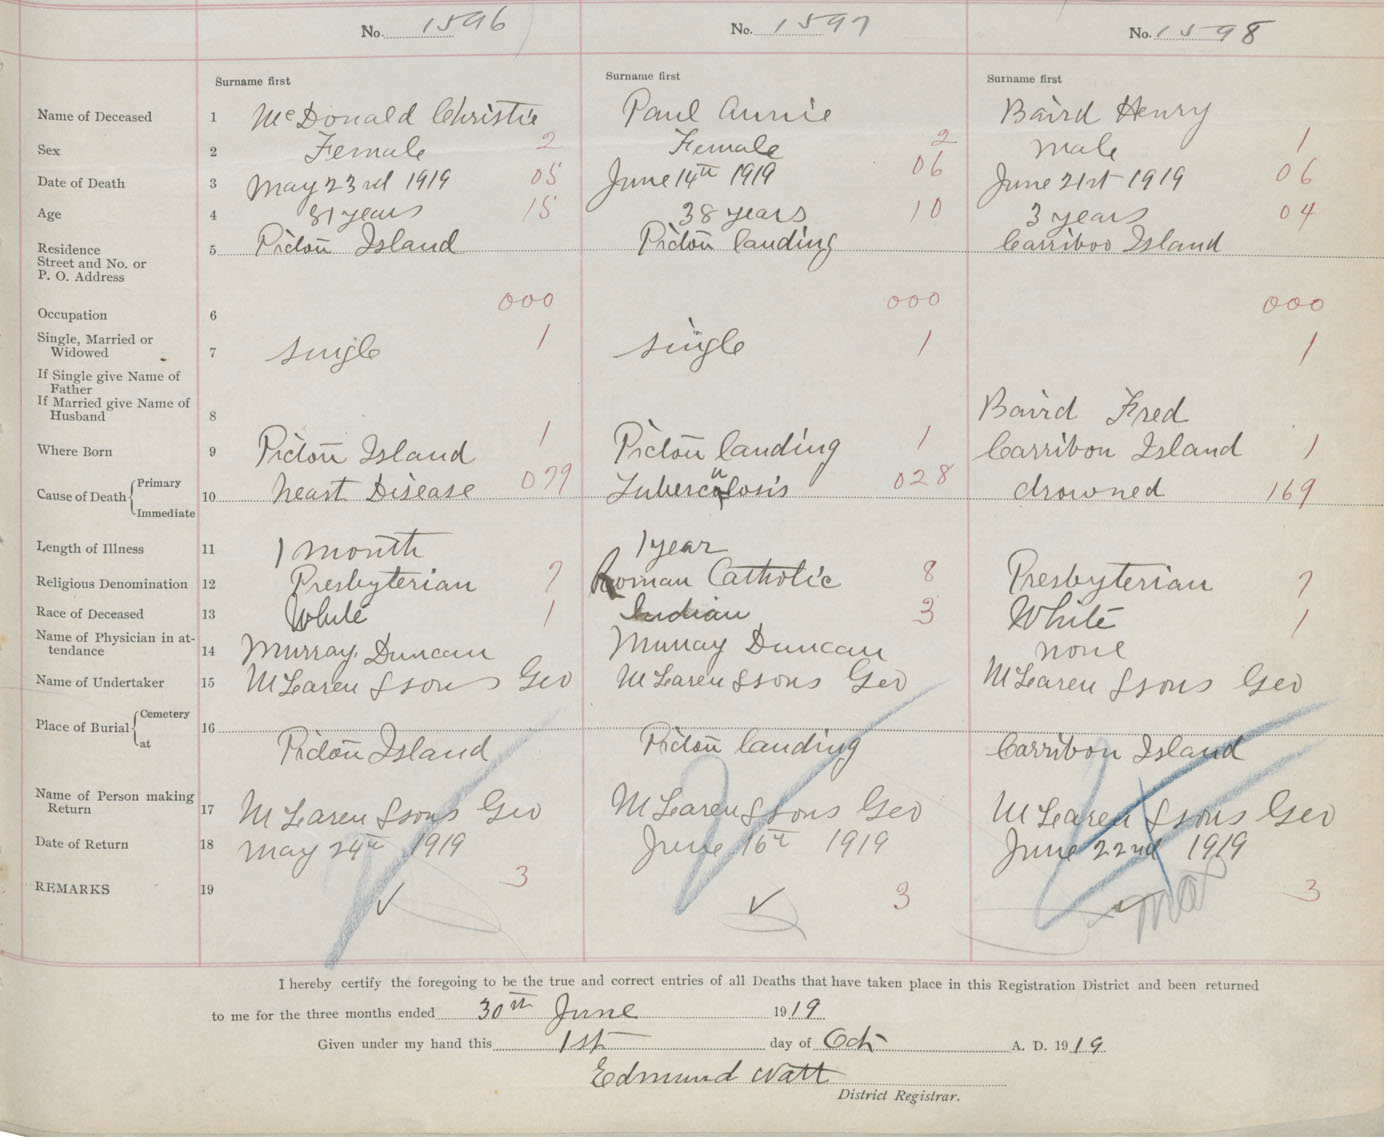 No. 1596 No. 1597 No. 1598
Surname first Surname first Surname first
Name of Deceased 1 McDonald Christie Paul Annie Baird Henry
Sex 2 Female 2 Female 2 Male 1
Date of Death 3 May 23rd 1919 05 June 14th 1919 06 June 21st 1919 06
Age 4 81 years 15 38 years 10 3 years 04
Residence 5 Pictou Island Pictou landing Carriboo Island
Street and No. or
P. O. Address
000 000 000
Occupation 6
Single, Married or
Widowed 7 Single 1 Single 1 1
If Single give Name of
Father
If Married give Name of
Husband 8 Baird Fred
Where Born 9 Pictou Island 1 Pictou landing 1 Carribou Island 1
Cause of Death Primary 10 heart Disease 079 Tuberculosis 028 drowned 169
Immediate
Length of Illness 11 1 month 1 year
Religious Denomination 12 Presbyterian 7 Roman Catholic 8 Presbyterian 7
Race of Deceased 13 White 1 Indian 3 White 1
Name of Physician in at-
tendance 14 Murray Duncan Murray Duncan none
Name of Undertaker 15 McLaren & sons Geo McLaren & sons Geo McLaren & sons Geo
Place of Burial Cemetery 16
at Pictou Island Pictou landing Carribou Island
Name of Person making
Return 17 McLaren & sons Geo McLaren & sons Geo McLaren & sons Geo
Date of Return 18 May 24th 1919 June 16th 1919 June 22nd 1919
REMARKS 19 ✓ 3 ✓ 3 3
I hereby certify the foregoing to be the true and correct entries of all Deaths that have taken place in this Registration District and been returned
to me for the three months ended 30th June 1919
Given under my hand this 1st day of Oct A. D. 1919
Edmund Watt
District Registrar.